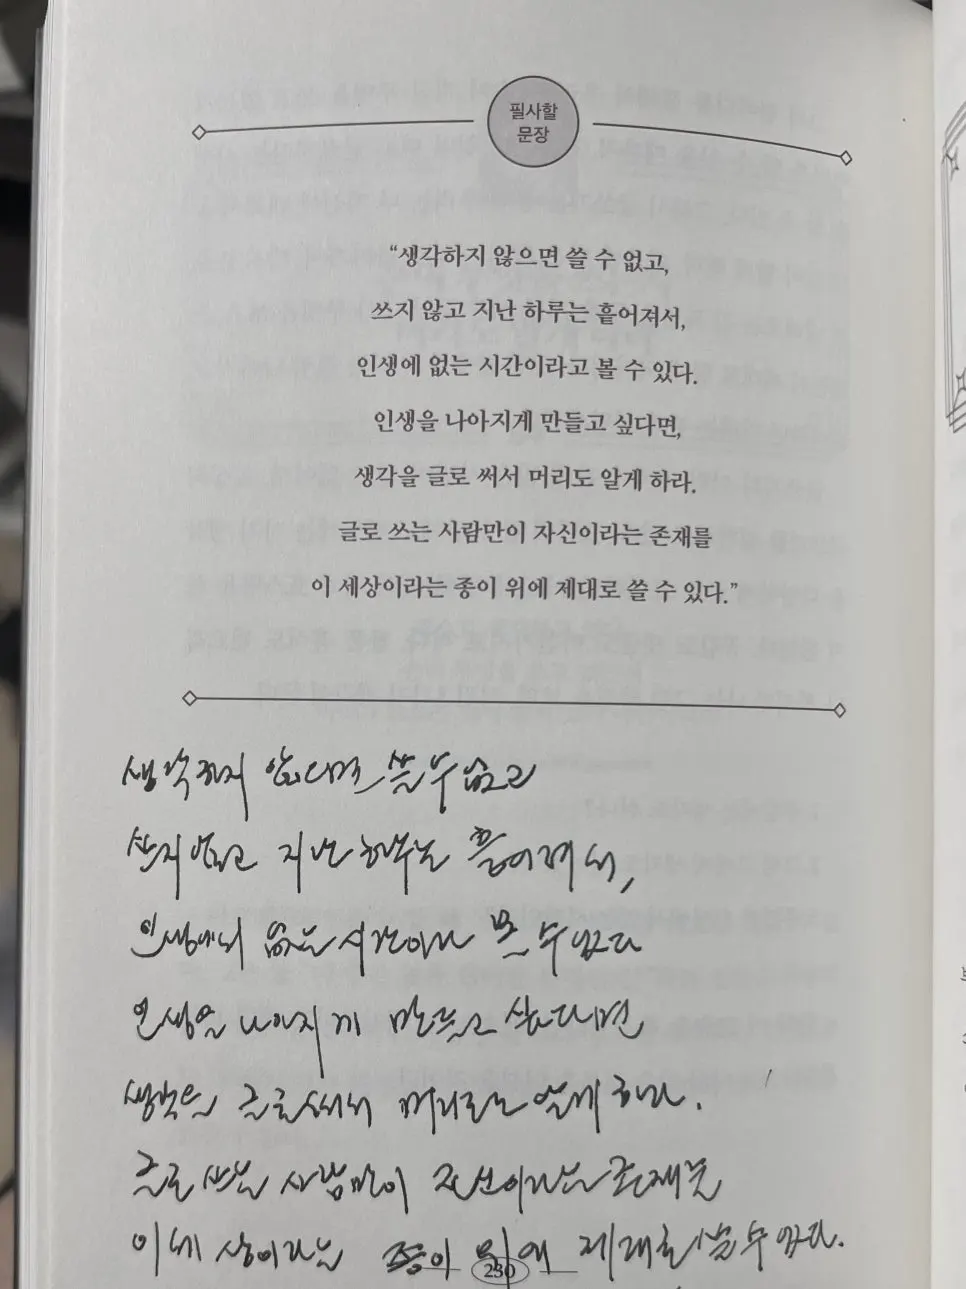 필사할
문장
“생각하지 않으면 쓸 수 없고,
쓰지 않고 지난 하루는 흩어져서,
인생에 없는 시간이라고 볼 수 있다.
인생을 나아지게 만들고 싶다면,
생각을 글로 써서 머리도 알게 하라.
글로 쓰는 사람만이 자신이라는 존재를
이 세상이라는 종이 위에 제대로 쓸 수 있다.”
생각하지 않으면 쓸 수 없고
쓰지 않고 지난 하루는 흩어져서,
인생에 없는 시간이라 볼 수 있다
인생을 나아지게 만들고 싶다면
생각을 글로 써서 머리로는 알게 하라.
글로 쓰는 사람만이 자신이라는 존재를
이 세상이라는 종이 위에 제대로 쓸 수 있다.
230